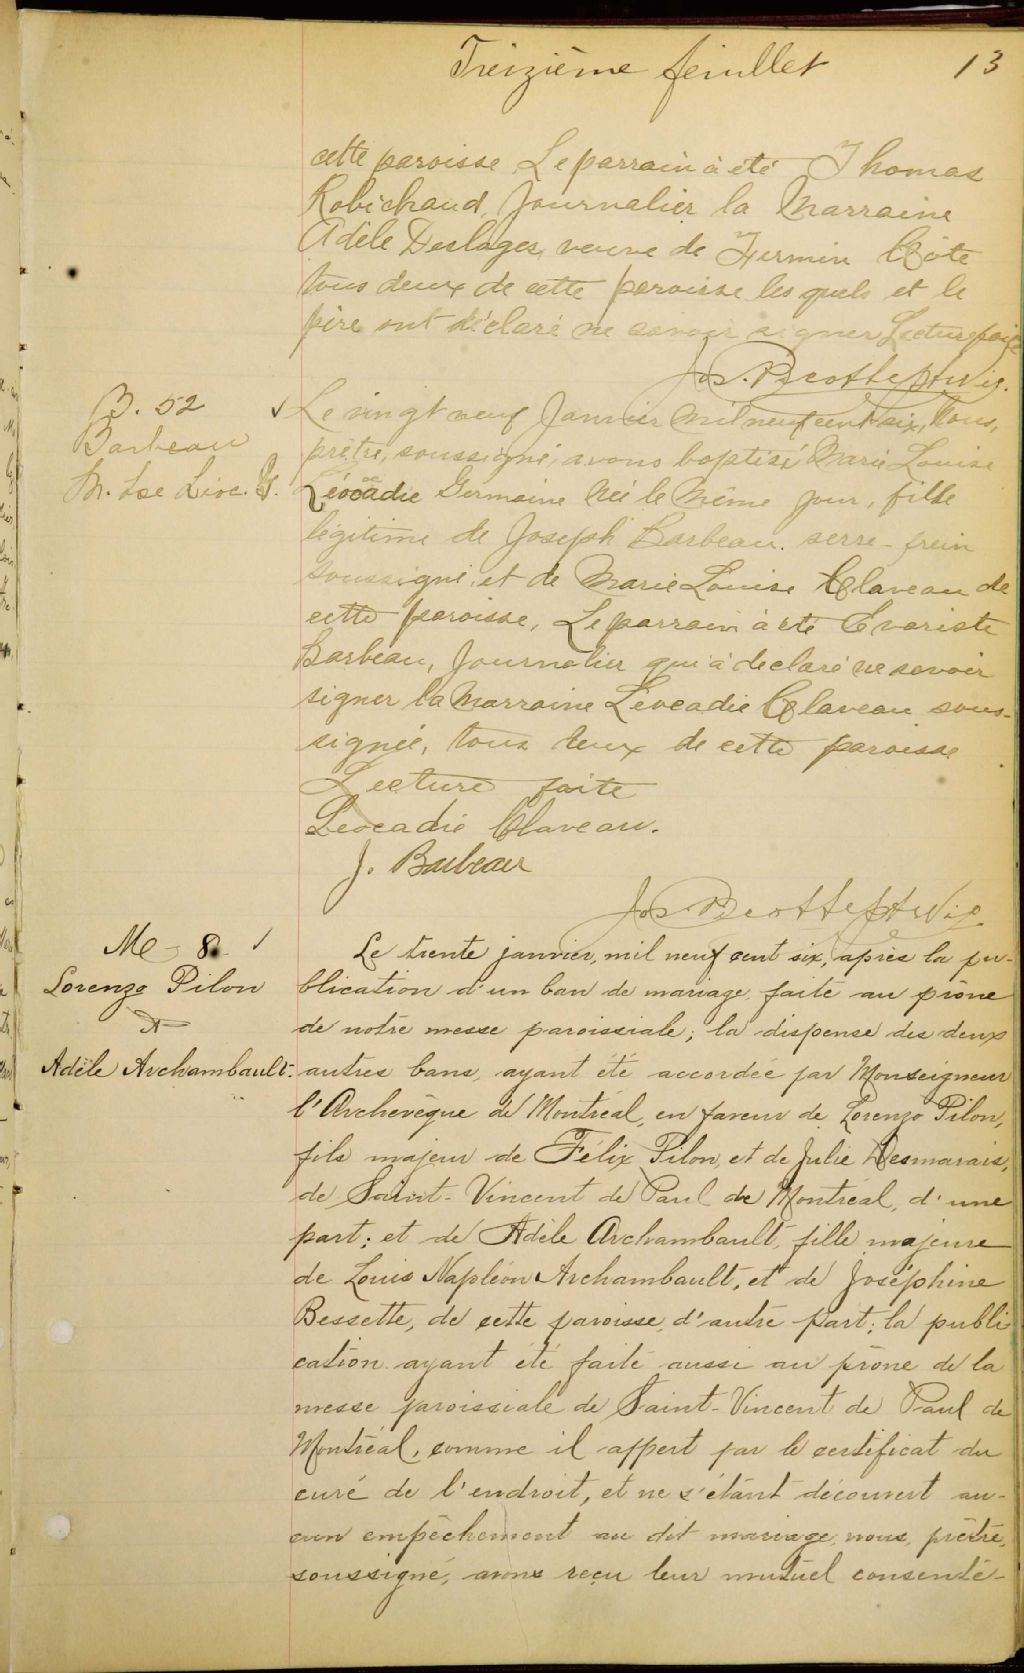 Treizième feuillet 13
cette paroisse Le parrain à été Thomas
Robichaud, Journalier la Marraine
Adèle Deslages, veuve de Firmin Côte
tous deux de cette paroisse les quels et le
père ont déclaré ne savoir signer Lecture faite
Jos. Beotte ptr Vic.
B. 52
Barbeau
M. Lse Léoc. G.
Le vingt neuf Janvier mil neuf cent six, Nous,
prêtre, soussigné, avons baptisé Marie Louise
Léocadie Germaine Née le Même jour, fille
légitime de Joseph Barbeau. serre-frein
soussigné, et de Marie Louise Claveau de
cette paroisse, Le parrain à été Evariste
Barbeau, Journalier qui à declaré ne savoir
signer la Marraine Léocadie Claveau sous-
signée, tous deux de cette paroisse
Lecture faite
Léocadie Claveau.
J. Barbeau
Jos Beotte ptr Vic.
M 8
Lorenzo Pilon
&
Adèle Archambault.
Le trente janvier, mil neuf cent six, après la pu-
blication d'un ban de mariage, faite au prône
de notre messe paroissiale; la dispense des deux
autres bans, ayant été accordée par Monseigneur
l'Archevêque de Montréal, en faveur de Lorenzo Pilon,
fils majeur de Félix Pilon, et de Julie Desmarais,
de Saint-Vincent de Paul de Montréal, d'une
part; et de Adèle Archambault, fille majeure
de Louis Napléon Archambault, et de Joséphine
Bessette, de cette paroisse, d'autre part; la publi
cation ayant été faite aussi au prône de la
messe paroissiale de Saint-Vincent de Paul de
Montréal, comme il appert par le certificat du
curé de l'endroit, et ne s'étant découvert au-
cun empêchement au dit mariage, nous, prêtre,
soussigné, avons reçu leur mutuel consente-